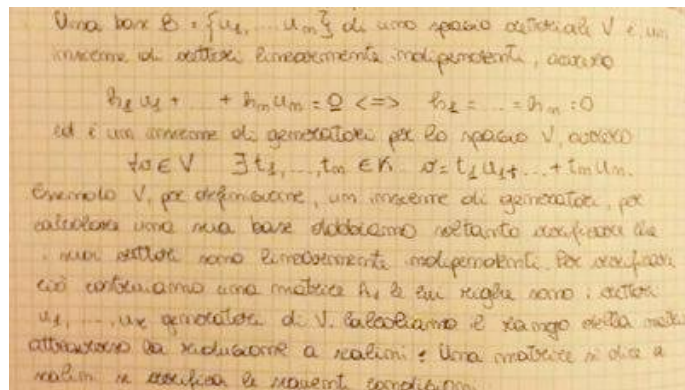 Una base B = {u1, ... um} di uno spazio vettoriale V è un
insieme di vettori linearmente indipendenti, ovvero
h1 u1 + ... + hm um = 0 <=> h1 = ... = hm = 0
ed è un insieme di generatori per lo spazio V, ovvero
∀v ∈ V ∃ t1, ..., tm ∈ K v = t1 u1 + ... + tm um.
Essendo V, per definizione, un insieme di generatori, per
calcolare una sua base dobbiamo soltanto verificare che
i suoi vettori sono linearmente indipendenti. Per verificare
ciò costruiamo una matrice A1 le cui righe sono i vettori
u1, ..., ur generatori di V. Calcoliamo il rango della
attraverso la riduzione a scalini: Una matrice si dice a
scalini se verifica le seguenti condizioni: